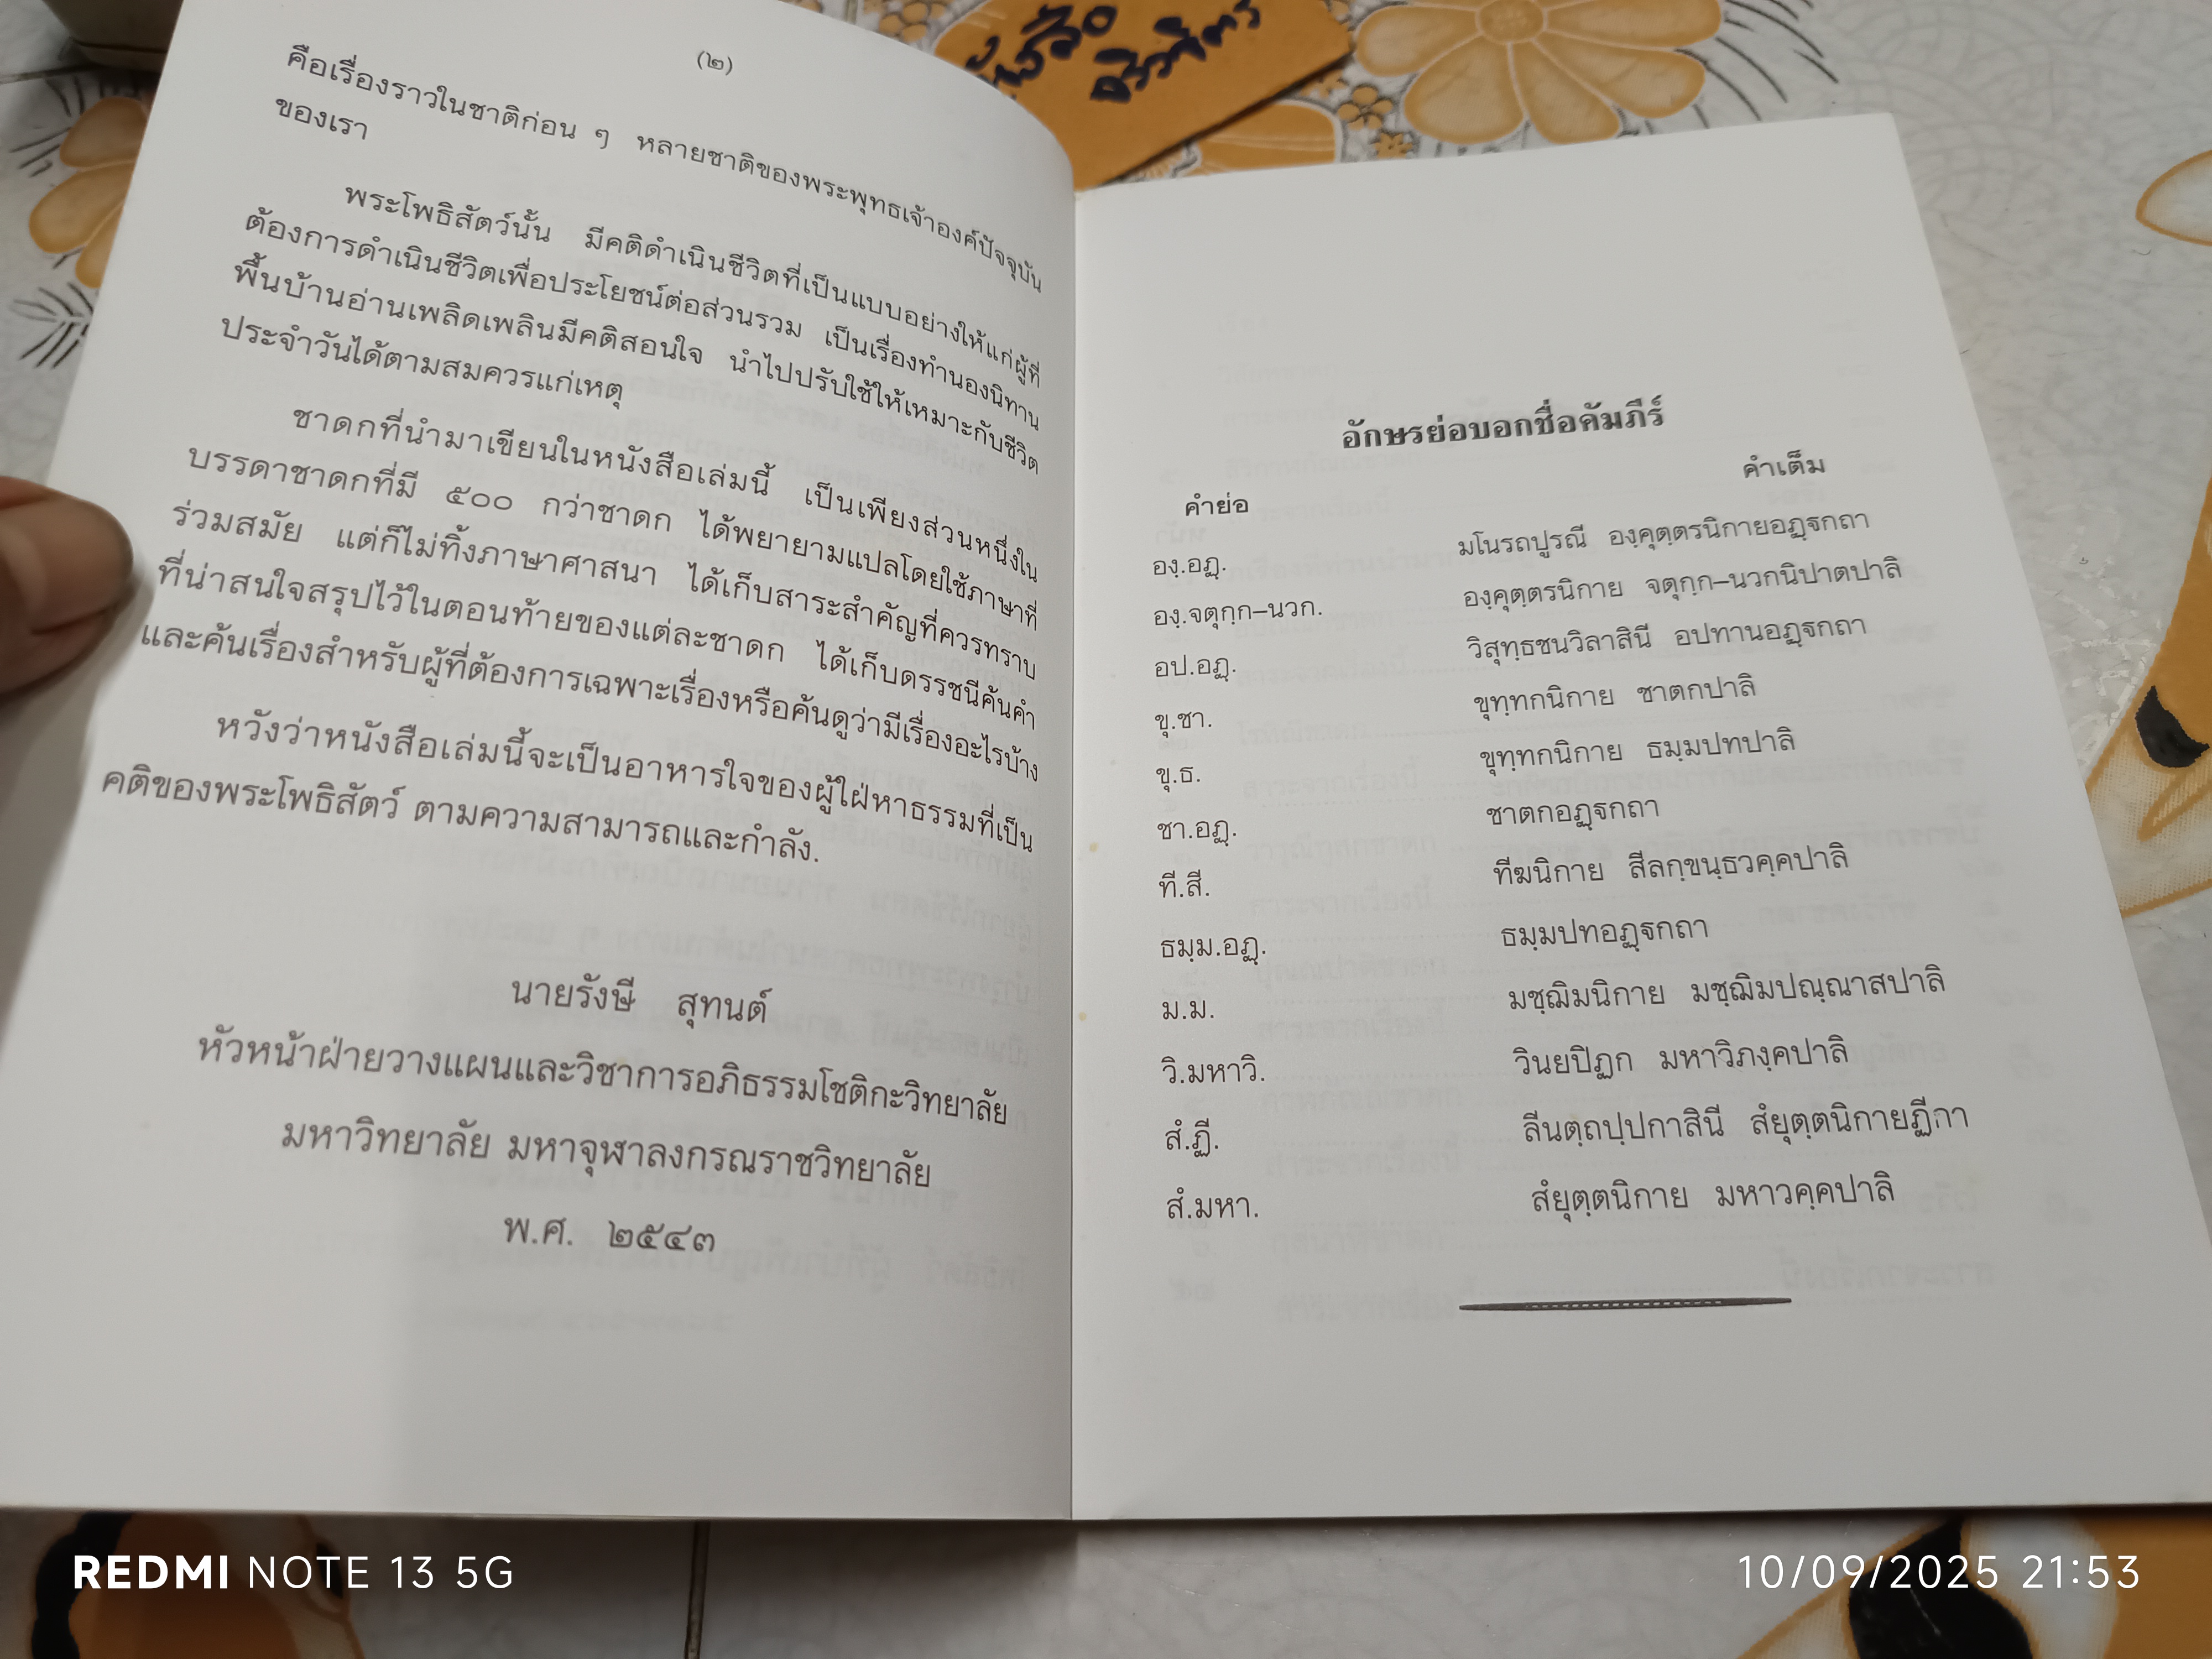 (๒)
คือเรื่องราวในชาติก่อน ๆ หลายชาติของพระพุทธเจ้าองค์ปัจจุบัน
ของเรา
พระโพธิสัตว์นั้น มีคติดำเนินชีวิตที่เป็นแบบอย่างให้แก่ผู้ที่
ต้องการดำเนินชีวิตเพื่อประโยชน์ต่อส่วนรวม เป็นเรื่องทำนองนิทาน
พื้นบ้านอ่านเพลิดเพลินมีคติสอนใจ นำไปปรับใช้ให้เหมาะกับชีวิต
ประจำวันได้ตามสมควรแก่เหตุ
ชาดกที่นำมาเขียนในหนังสือเล่มนี้ เป็นเพียงส่วนหนึ่งใน
บรรดาชาดกที่มี ๕๐๐ กว่าชาดก ได้พยายามแปลโดยใช้ภาษาที่
ร่วมสมัย แต่ก็ไม่ทิ้งภาษาศาสนา ได้เก็บสาระสำคัญที่ควรทราบ
ที่น่าสนใจสรุปไว้ในตอนท้ายของแต่ละชาดก ได้เก็บดรรชนีค้นคำ
และค้นเรื่องสำหรับผู้ที่ต้องการเฉพาะเรื่องหรือค้นดูว่ามีเรื่องอะไรบ้าง
หวังว่าหนังสือเล่มนี้จะเป็นอาหารใจของผู้ใฝ่หาธรรมที่เป็น
คติของพระโพธิสัตว์ ตามความสามารถและกำลัง.
นายรังษี สุทนต์
หัวหน้าฝ่ายวางแผนและวิชาการอภิธรรมโชติกะวิทยาลัย
มหาวิทยาลัย มหาจุฬาลงกรณราชวิทยาลัย
พ.ศ. ๒๕๔๓
อักษรย่อบอกชื่อคัมภีร์
คำย่อ คำเต็ม
องฺ.อฏฺ. มโนรถปูรณี องฺคุตฺตรนิกายอฏฺฐกถา
องฺ.จตุกฺก–นวก. องฺคุตฺตรนิกาย จตุกฺก–นวกนิปาตปาลิ
อป.อฏฺ. วิสุทฺธชนวิลาสินี อปทานอฏฺฐกถา
ขุ.ชา. ขุทฺทกนิกาย ชาตกปาลิ
ขุ.ธ. ขุทฺทกนิกาย ธมฺมปทปาลิ
ชา.อฏฺ. ชาตกอฏฺฐกถา
ที.สี. ทีฆนิกาย สีลกฺขนฺธวคฺคปาลิ
ธมฺม.อฏฺ. ธมฺมปทอฏฺฐกถา
ม.ม. มชฺฌิมนิกาย มชฺฌิมปณฺณาสปาลิ
วิ.มหาวิ. วินยปิฏก มหาวิภงฺคปาลิ
สํ.ฏี. ลีนตฺถปฺปกาสินี สํยุตฺตนิกายฏีกา
สํ.มหา. สํยุตฺตนิกาย มหาวคฺคปาลิ
REDMI NOTE 13 5G
10/09/2025 21:53